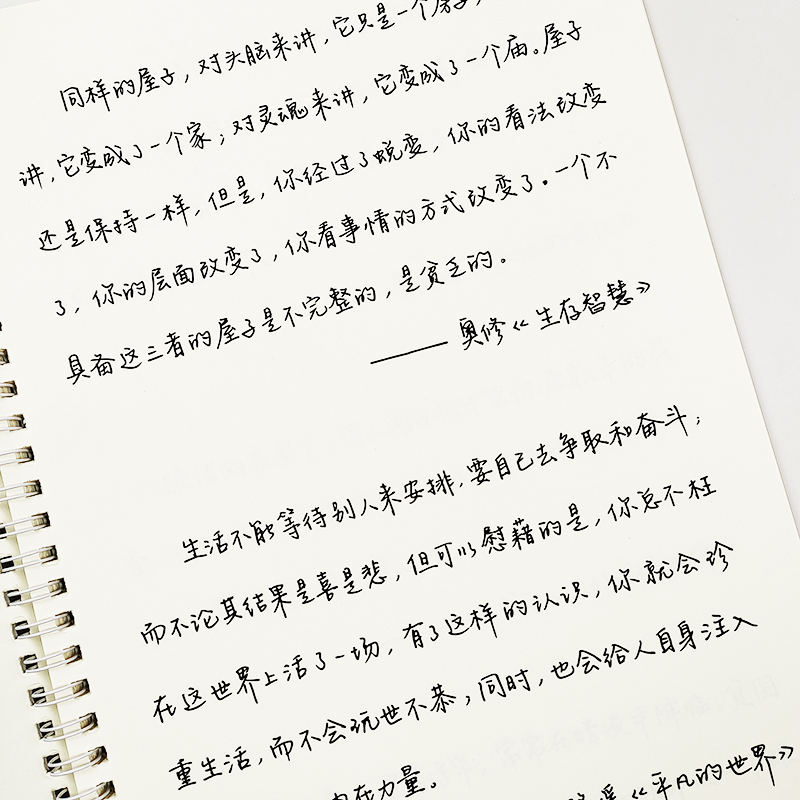 同样的屋子，对头脑来讲，它只是一个房子，
讲，它变成了一个家；对灵魂来讲，它变成了一个庙。屋子
还是保持一样，但是，你经过了蜕变，你的看法改变
了，你的层面改变了，你看事情的方式改变了。一个不
具备这三者的屋子是不完整的，是贫乏的。
——奥修《生存智慧》
生活不能等待别人来安排，要自己去争取和奋斗；
而不论其结果是喜是悲，但可以慰藉的是，你总不枉
在这世界上活了一场，有了这样的认识，你就会珍
重生活，而不会玩世不恭；同时，也会给人自身注入
内在力量。
遥《平凡的世界》